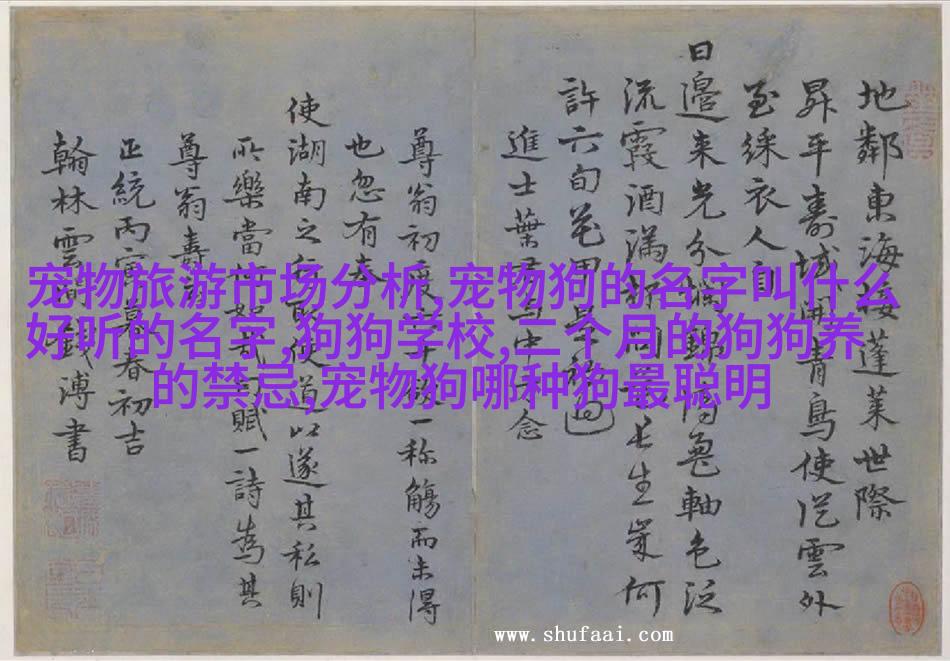 地鄰東海接蓬萊世際
昇平壽域開青鳥使從雲外
至綵衣人自
日邊来光分錦龜軸色泛
流霞酒滿問長生歲何
許六旬花甲過
進士葉
尊翁初度一称觴而未得
也忽有
使湖南之行取便道以遂其私則
所樂當何如賦一詩為其
尊翁壽
正統丙寅暮春初吉
翰林雲間錢溥書
宠物旅游市场分析,宠物狗的名字叫什么
好听的名字,狗狗学校,二个月的狗狗养
的禁忌,宠物狗哪种狗最聪明
www.shufaai.com